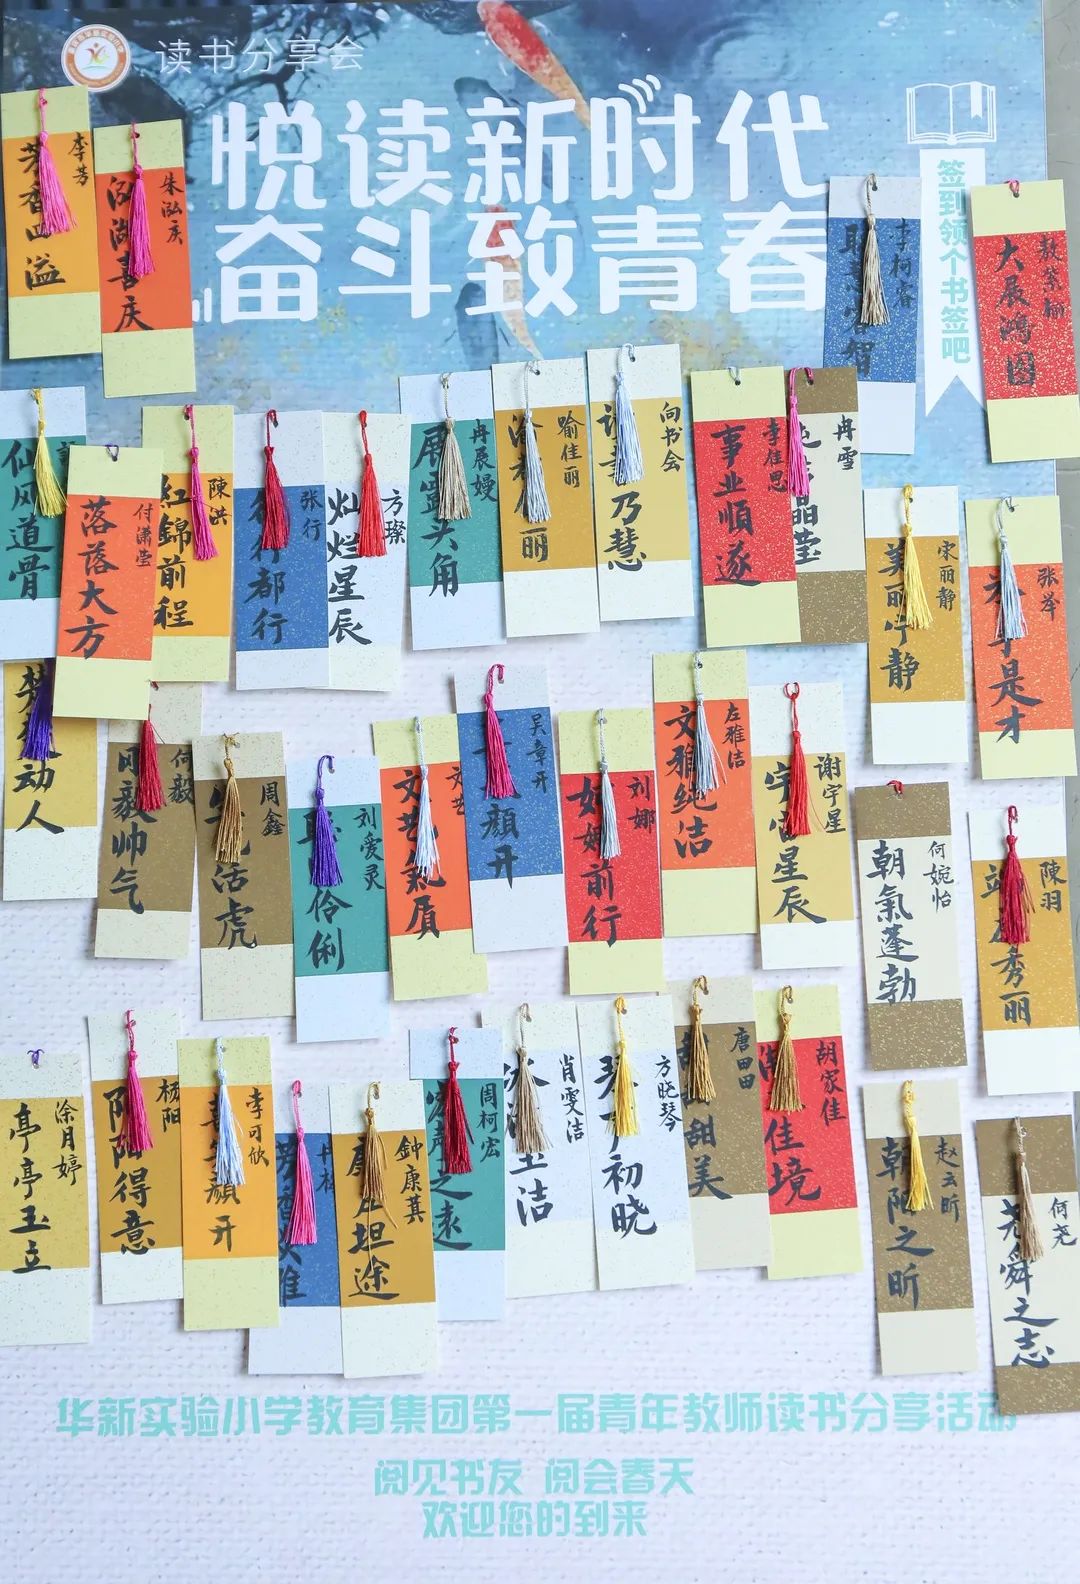 读书分享会
悦读新时代
奋斗致青春
签到领个书签吧
李芳
朱泓庆
李柯睿
大展鸿图
仙风道骨
付潇莹
落落大方
陳洪
紅錦前程
张行
行行都行
方璨
灿烂星辰
冉展嫚
喻佳丽
向书会
李佳思
事业順遂
冉雪
宋丽静
美丽宁静
张举
动人
何毅
刚毅帅气
周鑫
活虎
刘爱灵
伶俐
文艺氣質
吴章开
顔开
刘娜
前行
左雅洁
文雅纯洁
谢宇星
宇宙星辰
何婉怡
朝氣蓬勃
陳羽
秀丽
涂月婷
亭亭玉立
杨阳
阳阳得意
李可欣
顔开
鈡康萁
康庄坦途
周柯宏
之远
肖雯洁
冰清玉洁
方晓琴
初晓
唐田田
甜美
胡家佳
佳境
赵云昕
朝阳之昕
何尧
尧舜之志
华新实验小学教育集团第一届青年教师读书分享活动
阅见书友 阅会春天
欢迎您的到来